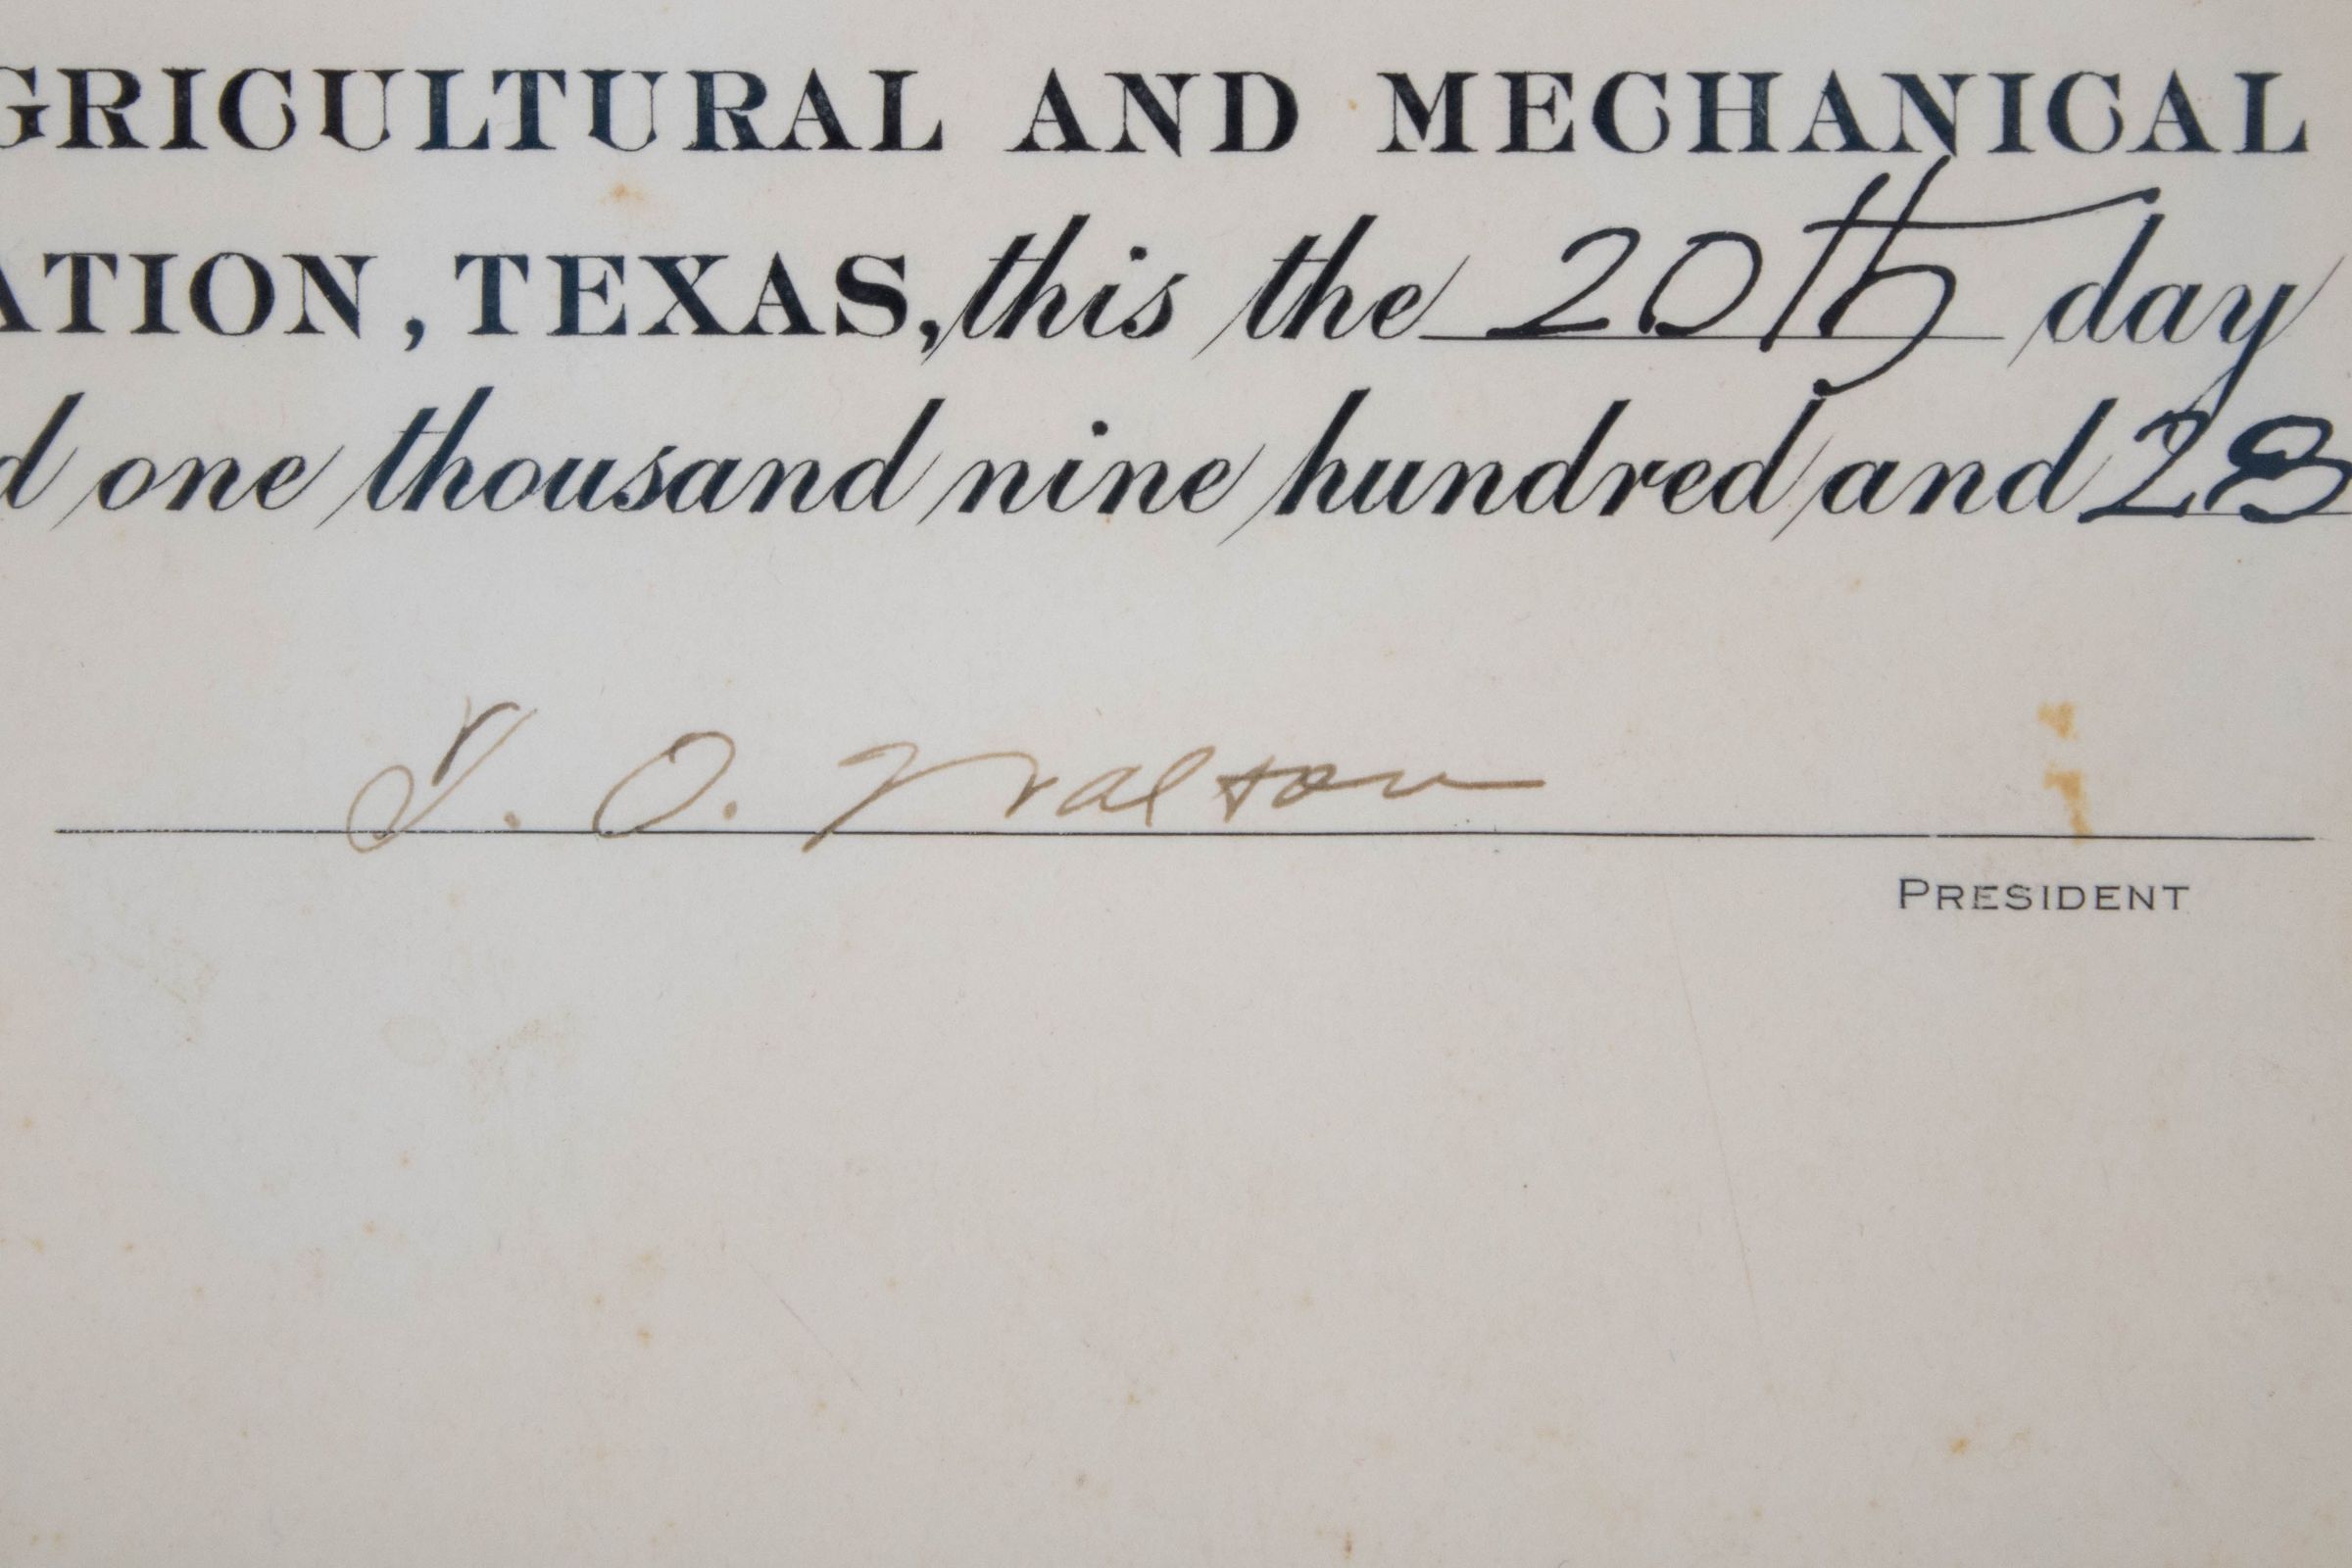 GRICULTURAL AND MECHANICAL
ATION, TEXAS, this the 20th day
d one thousand nine hundred and 28
T. O. Walton
PRESIDENT